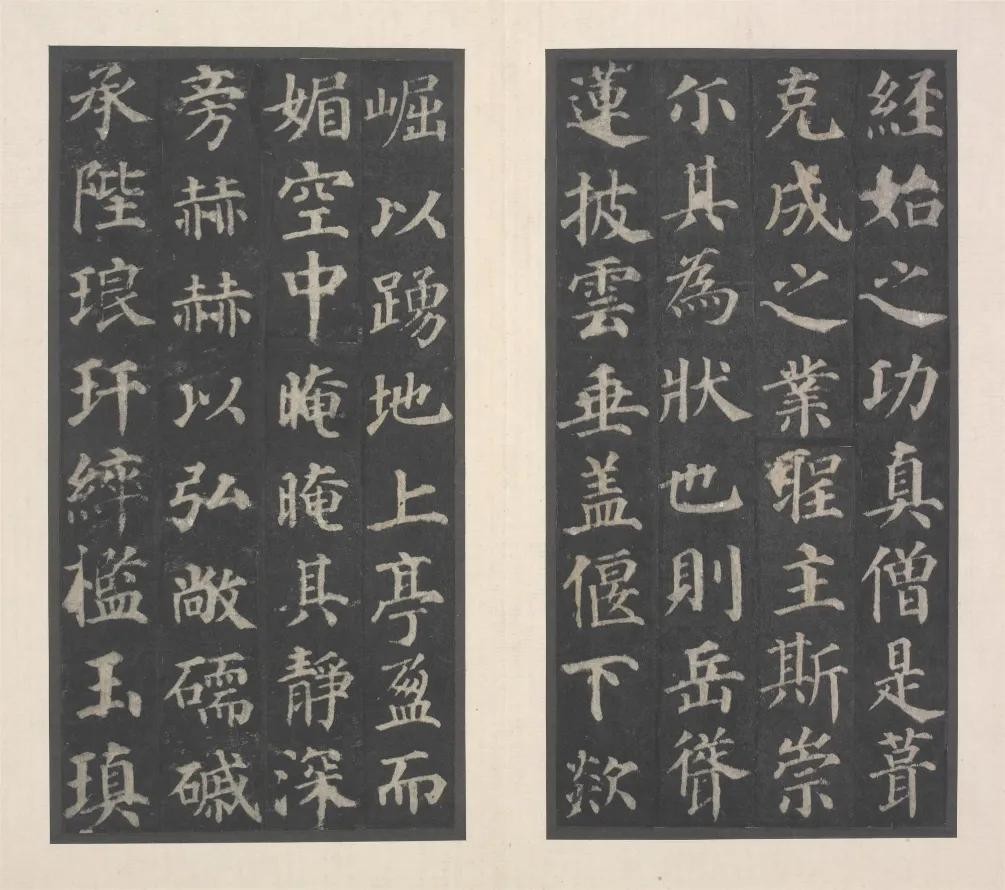 経始之功真僧是葺
克成之業聖主斯崇
尓其為狀也則岳聳
蓮披雲垂盖偃下欻
崛以踴地上亭盈而
媚空中晻晻其靜深
旁赫赫以弘敞礝碱
承陛琅玕綷檻玉瑱